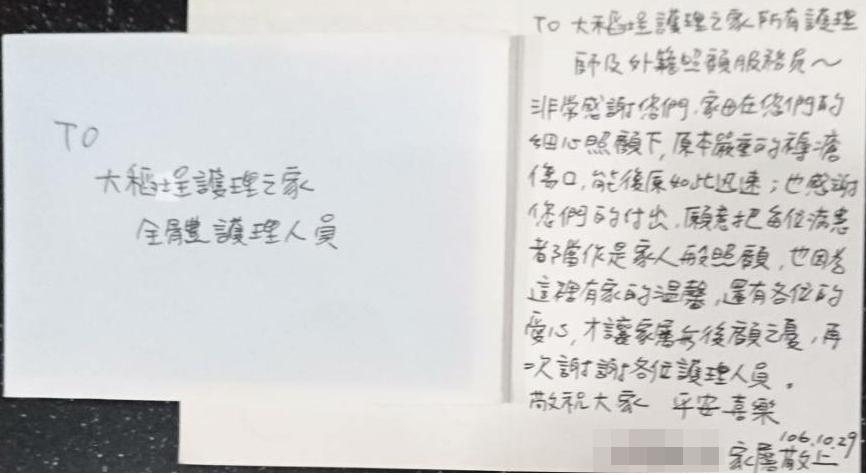 TO
大稻埕護理之家
全體護理人員
TO 大稻埕護理之家所有護理
師及外籍照顧服務員~
非常感謝您們,家母在您們的
細心照顧下,原本嚴重的褥瘡
傷口,能復原如此迅速;也感謝
您們的付出,願意把每位病患
都當作是家人般照顧,也因為
這裡有家的溫馨,還有各位的
愛心,才讓家屬無後顧之憂,再
次謝謝各位護理人員。
敬祝大家 平安喜樂
106.10.29
家屬敬上